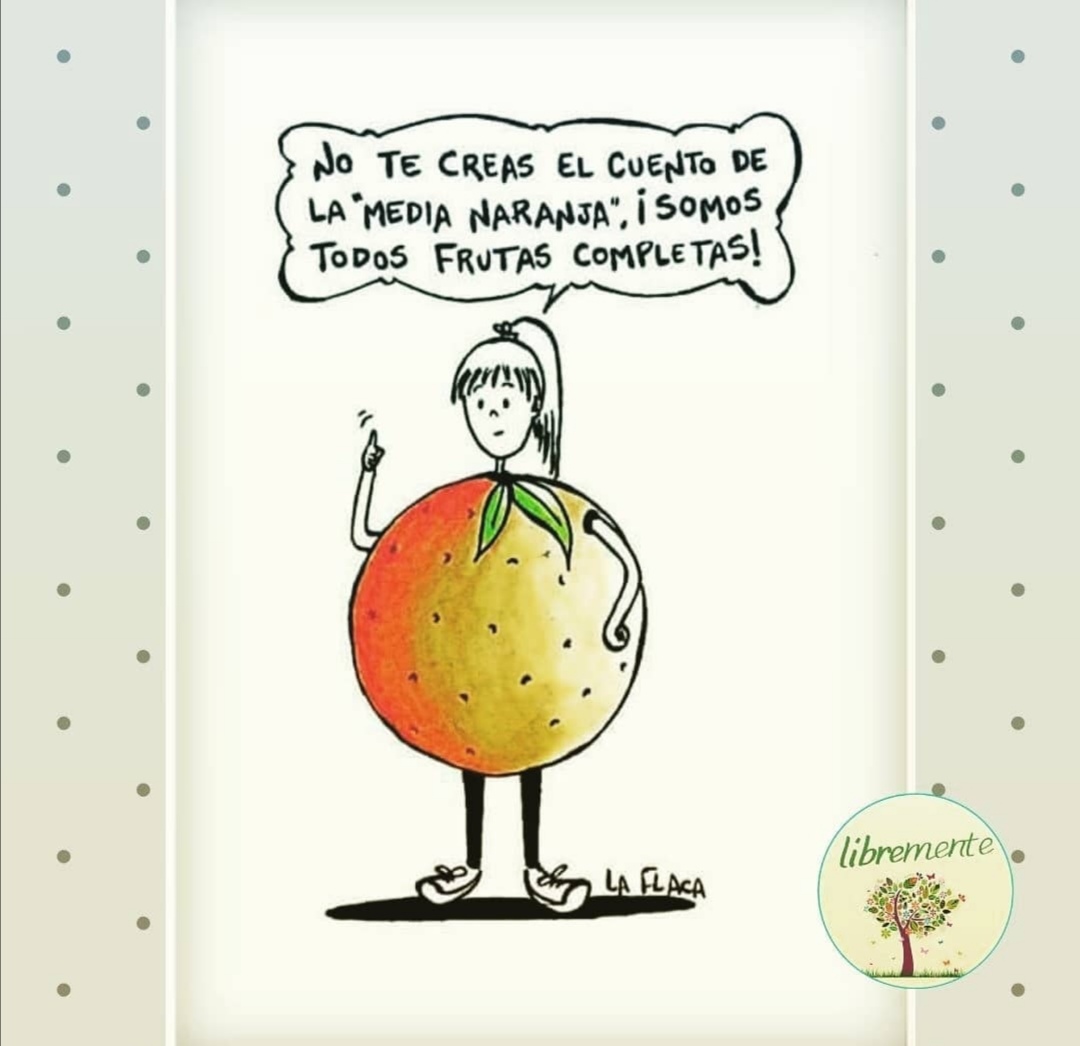 NO TE CREAS EL CUENTO DE
LA "MEDIA NARANJA", ¡SOMOS
TODOS FRUTAS COMPLETAS!
LA FLACA
libremente